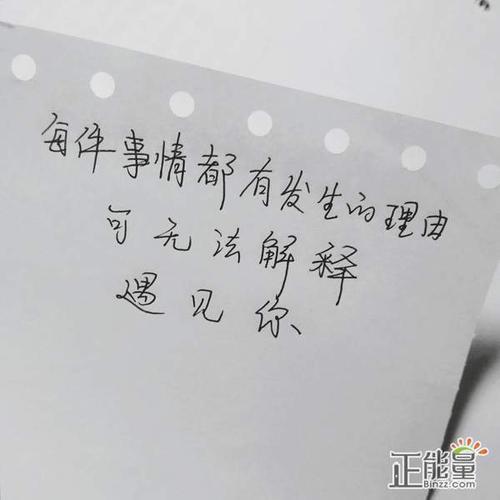 每件事情都有发生的理由
可无法解释
遇见你
正能量
Binzz.com